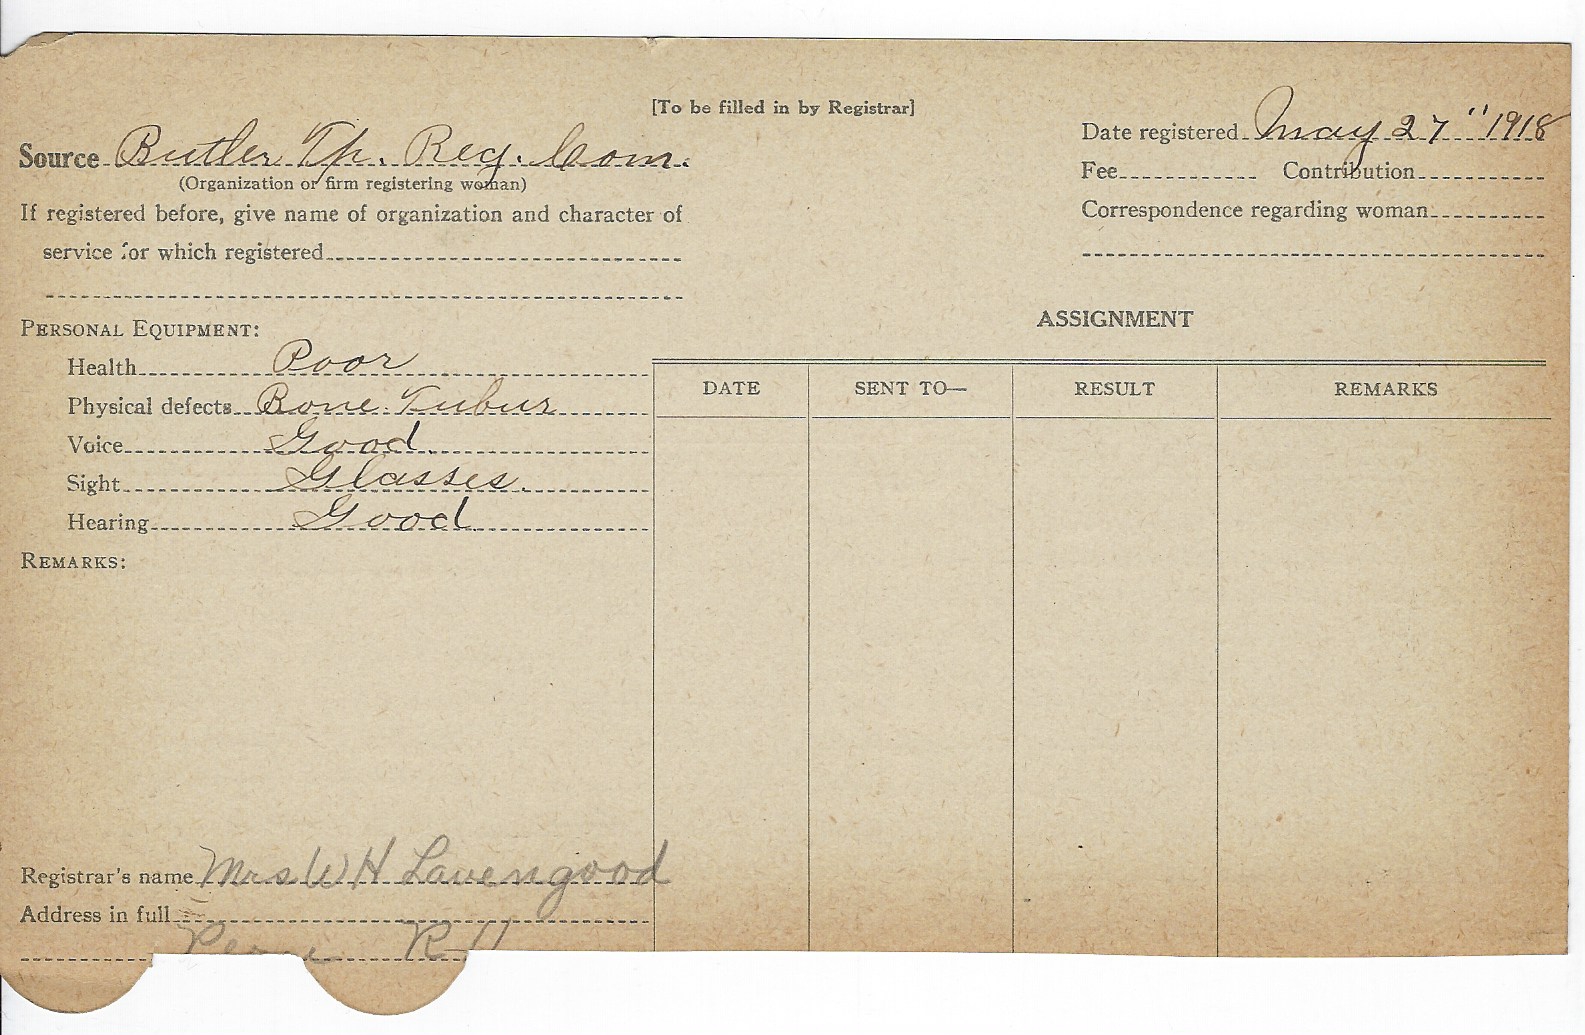 [To be filled in by Registrar]
Source Butler Tp. Reg. Com.
(Organization or firm registering woman)
If registered before, give name of organization and character of
service for which registered
Date registered May 27" 1918
Fee Contribution
Correspondence regarding woman
PERSONAL EQUIPMENT:
Health Poor
Physical defects Bone Tubur
Voice Good.
Sight Glasses.
Hearing Good
REMARKS:
ASSIGNMENT
DATE SENT TO— RESULT REMARKS
Registrar's name Mrs W H Lavengood
Address in full